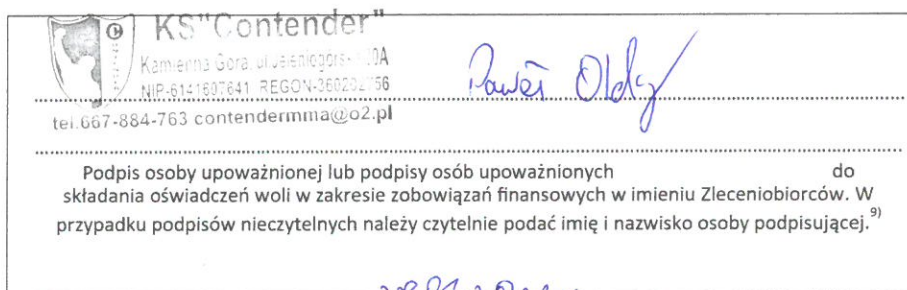 KS"Contender"
Kamienna Góra, ul. Jeleniogórs
NIP-6141607641 REGON-360202
tel.667-884-763 contendermma@o2.pl
Paweł
Podpis osoby upoważnionej lub podpisy osób upoważnionych do
składania oświadczeń woli w zakresie zobowiązań finansowych w imieniu Zleceniobiorców. W
przypadku podpisów nieczytelnych należy czytelnie podać imię i nazwisko osoby podpisującej.9)